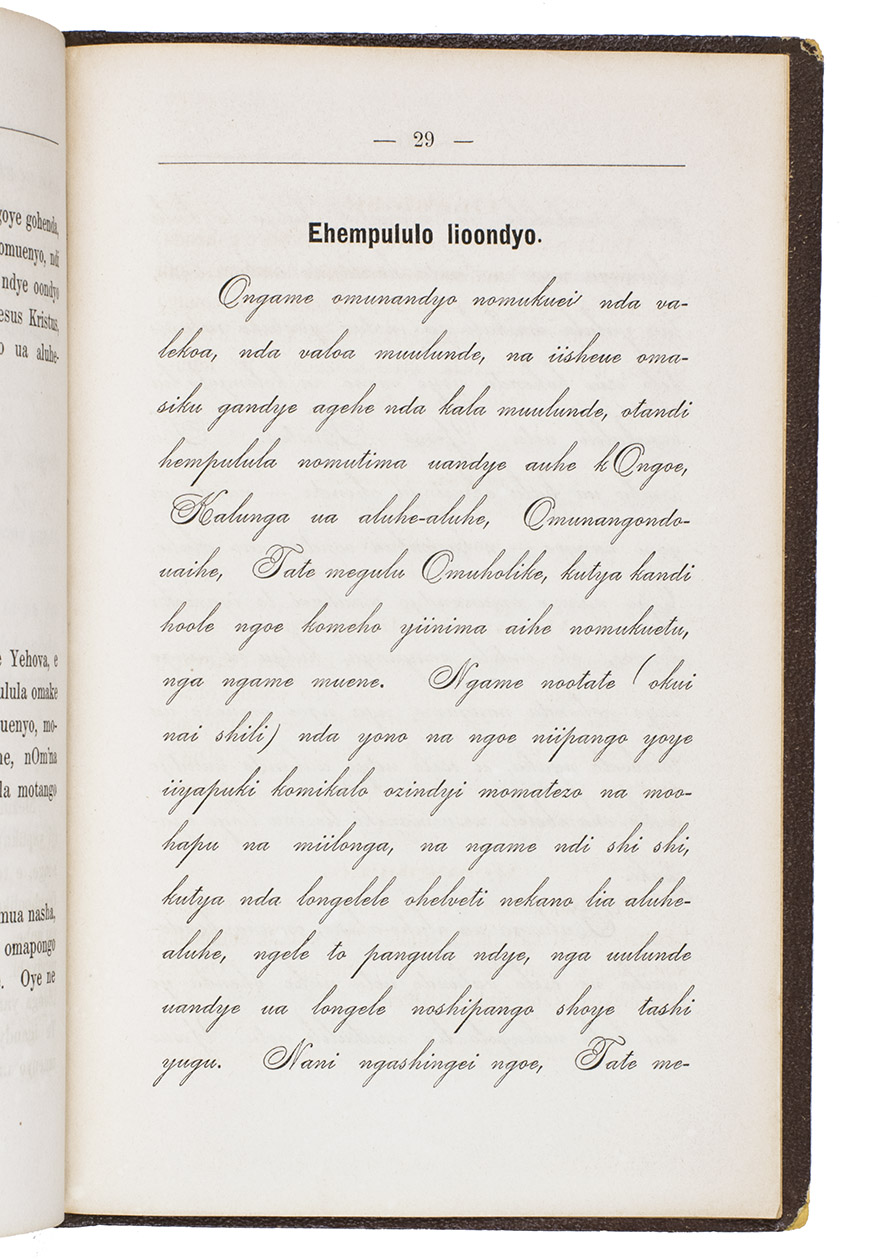 goye gohenda,
omuenyo, ndi
ndye oondyo
esus Kristus,
o ua aluhe-
e Yehova, e
ulula omake
uenyo, mo-
ne, nOm'na
la motango
mua nasha,
omapongo
Oye ne
— 29 —
Ehempululo lioondyo.
Ongame omunandyo nomukuei nda va-
lekoa, nda valoa muulunde, na iisheue oma-
siku gandye agehe nda kala muulunde, otandi
hempulula nomutima uandye auhe kOngoe,
Kalunga ua aluhe-aluhe, Omunangondo-
uaihe, Tate megulu Omuholike, kutya kandi
hoole ngoe komeho yiinima aihe nomukuetu,
nga ngame muene. Ngame nootate (okui
nai shili) nda yono na ngoe niipango yoye
iiyapuki komikalo ozindyi momatezo na moo-
hapu na miilonga, na ngame ndi shi shi,
kutya nda longelele ohelveti nekano lia aluhe-
aluhe, ngele to pangula ndye, nga uulunde
uandye ua longele noshipango shoye tashi
yugu. Nani ngashingei ngoe, Tate me-